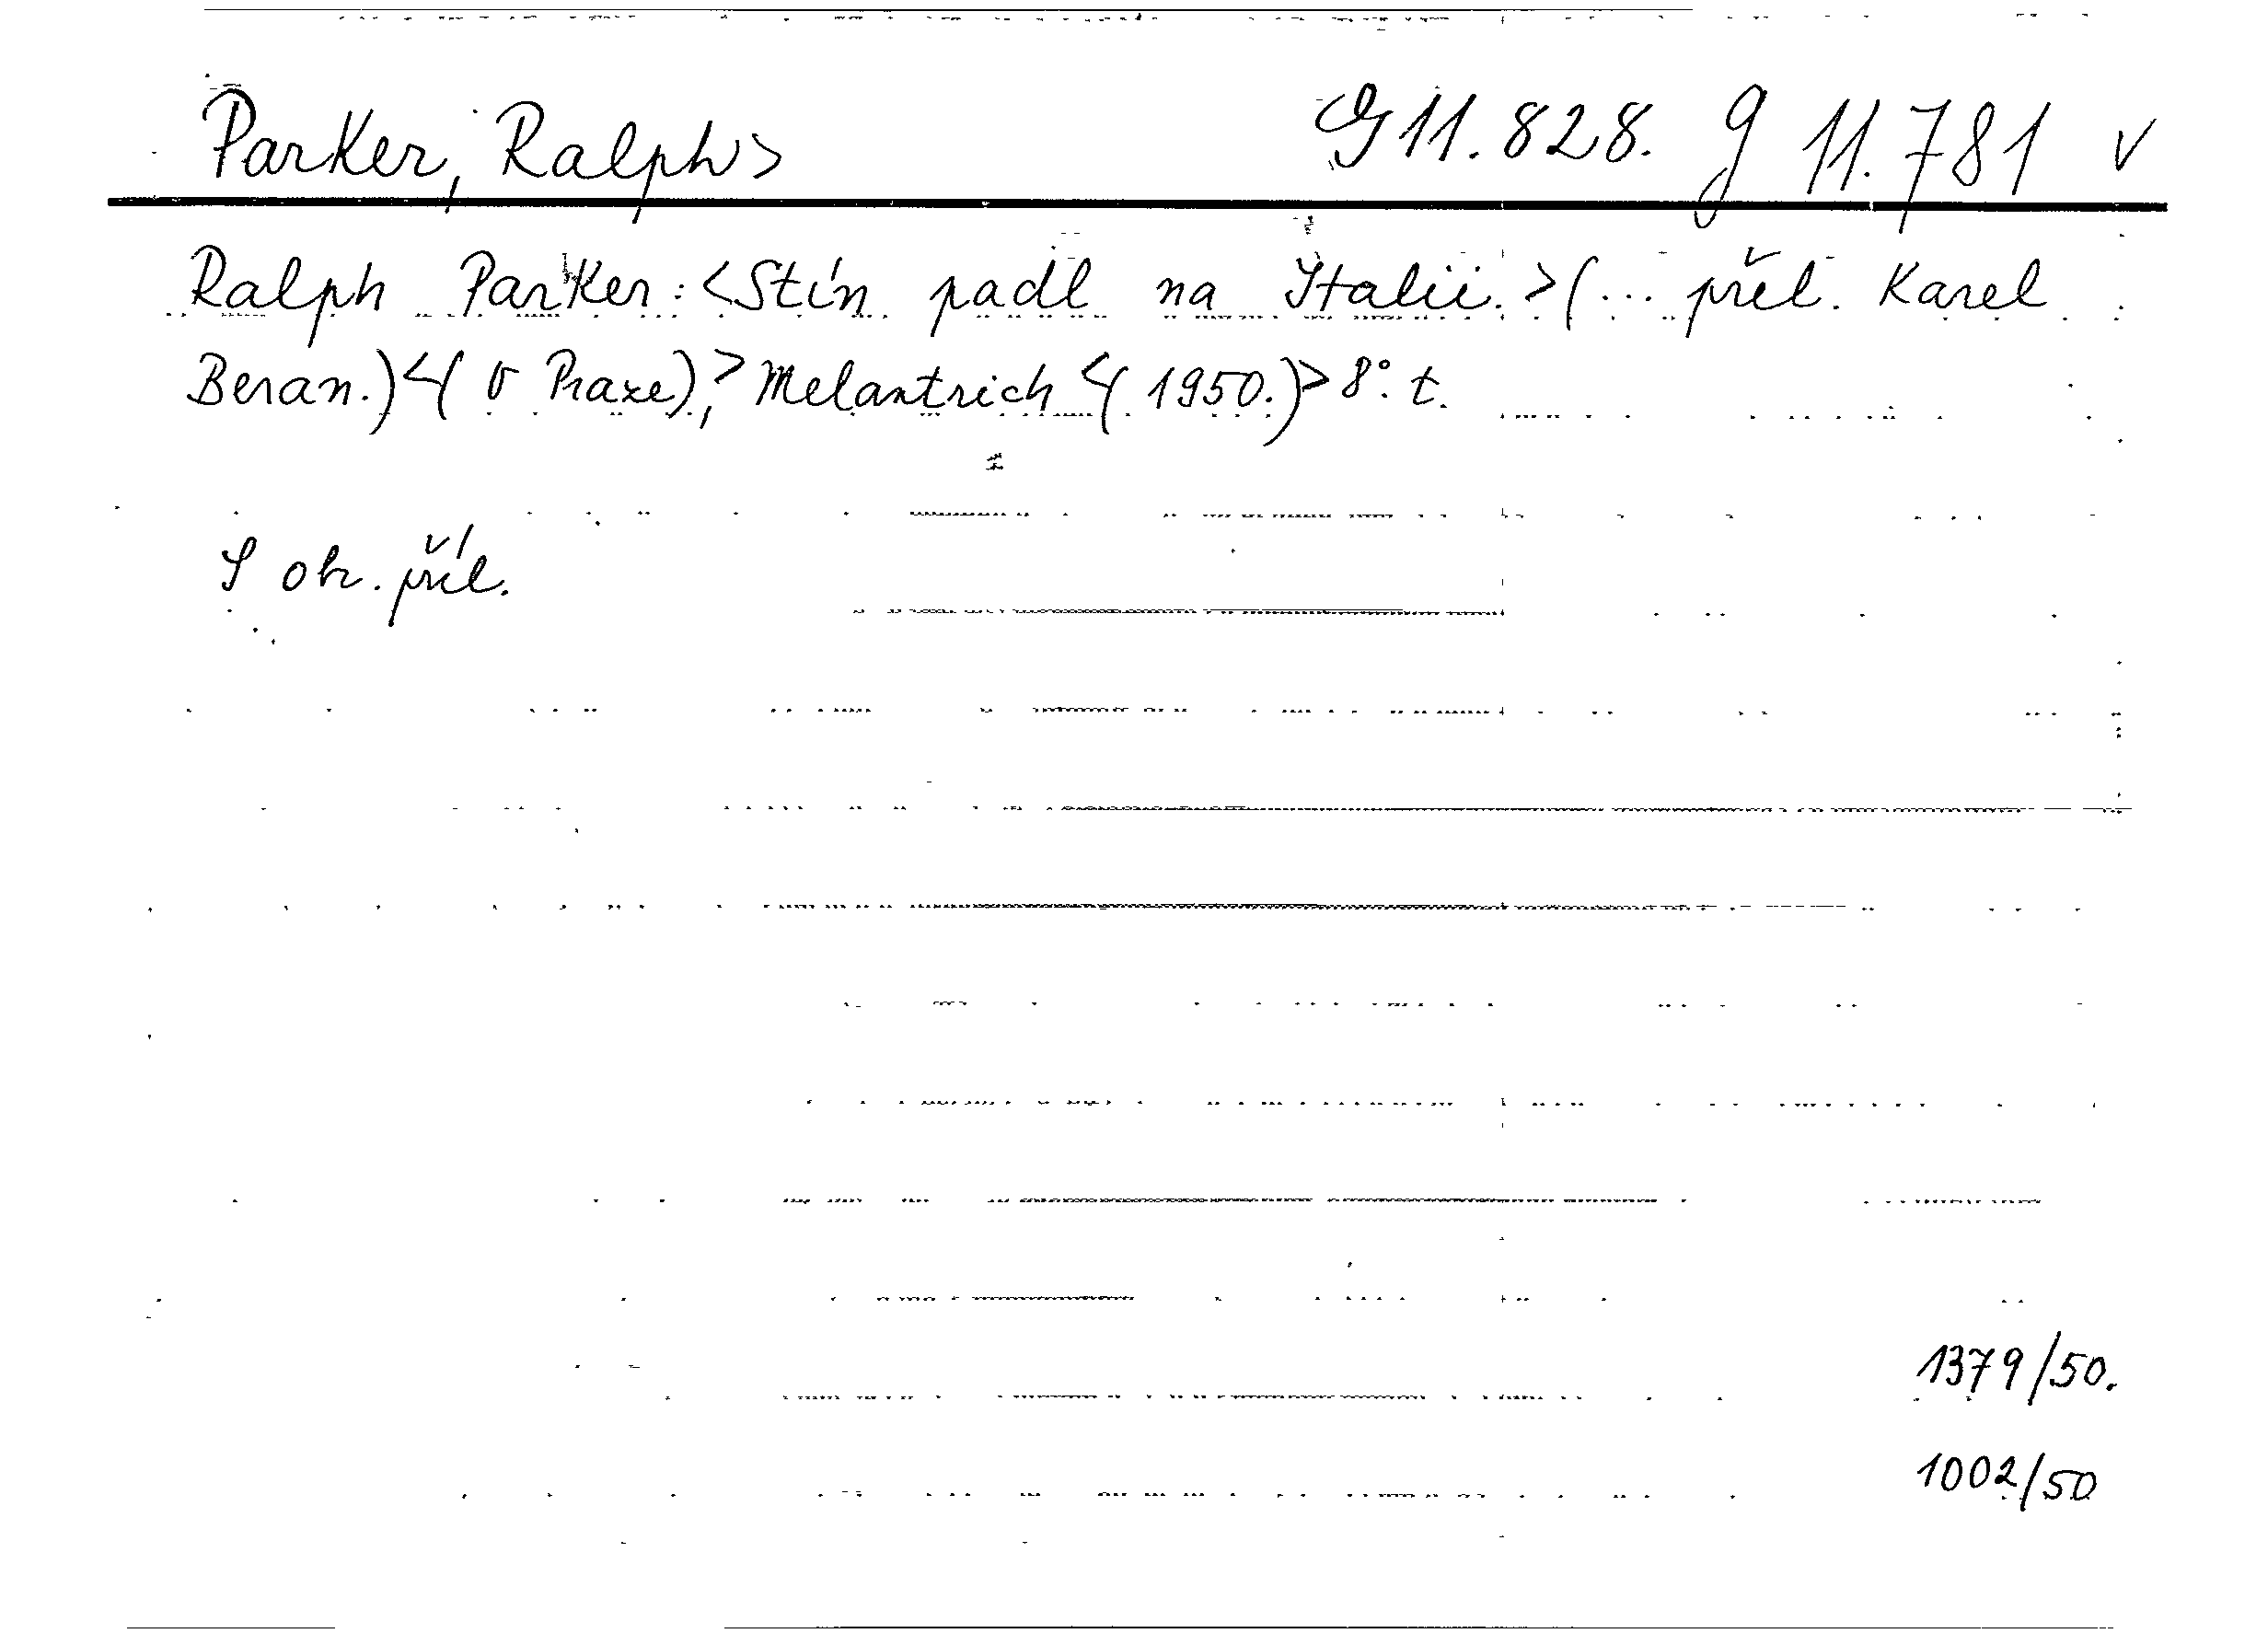 Parker, Ralph> G 11.828. G 11.781 v
Ralph Parker: <Stín padl na Italii.> (... přel. Karel
Beran.) <(v Praze),> Melantrich <(1950.)> 8°. t.
S obr. příl.
1379/50.
1002/50